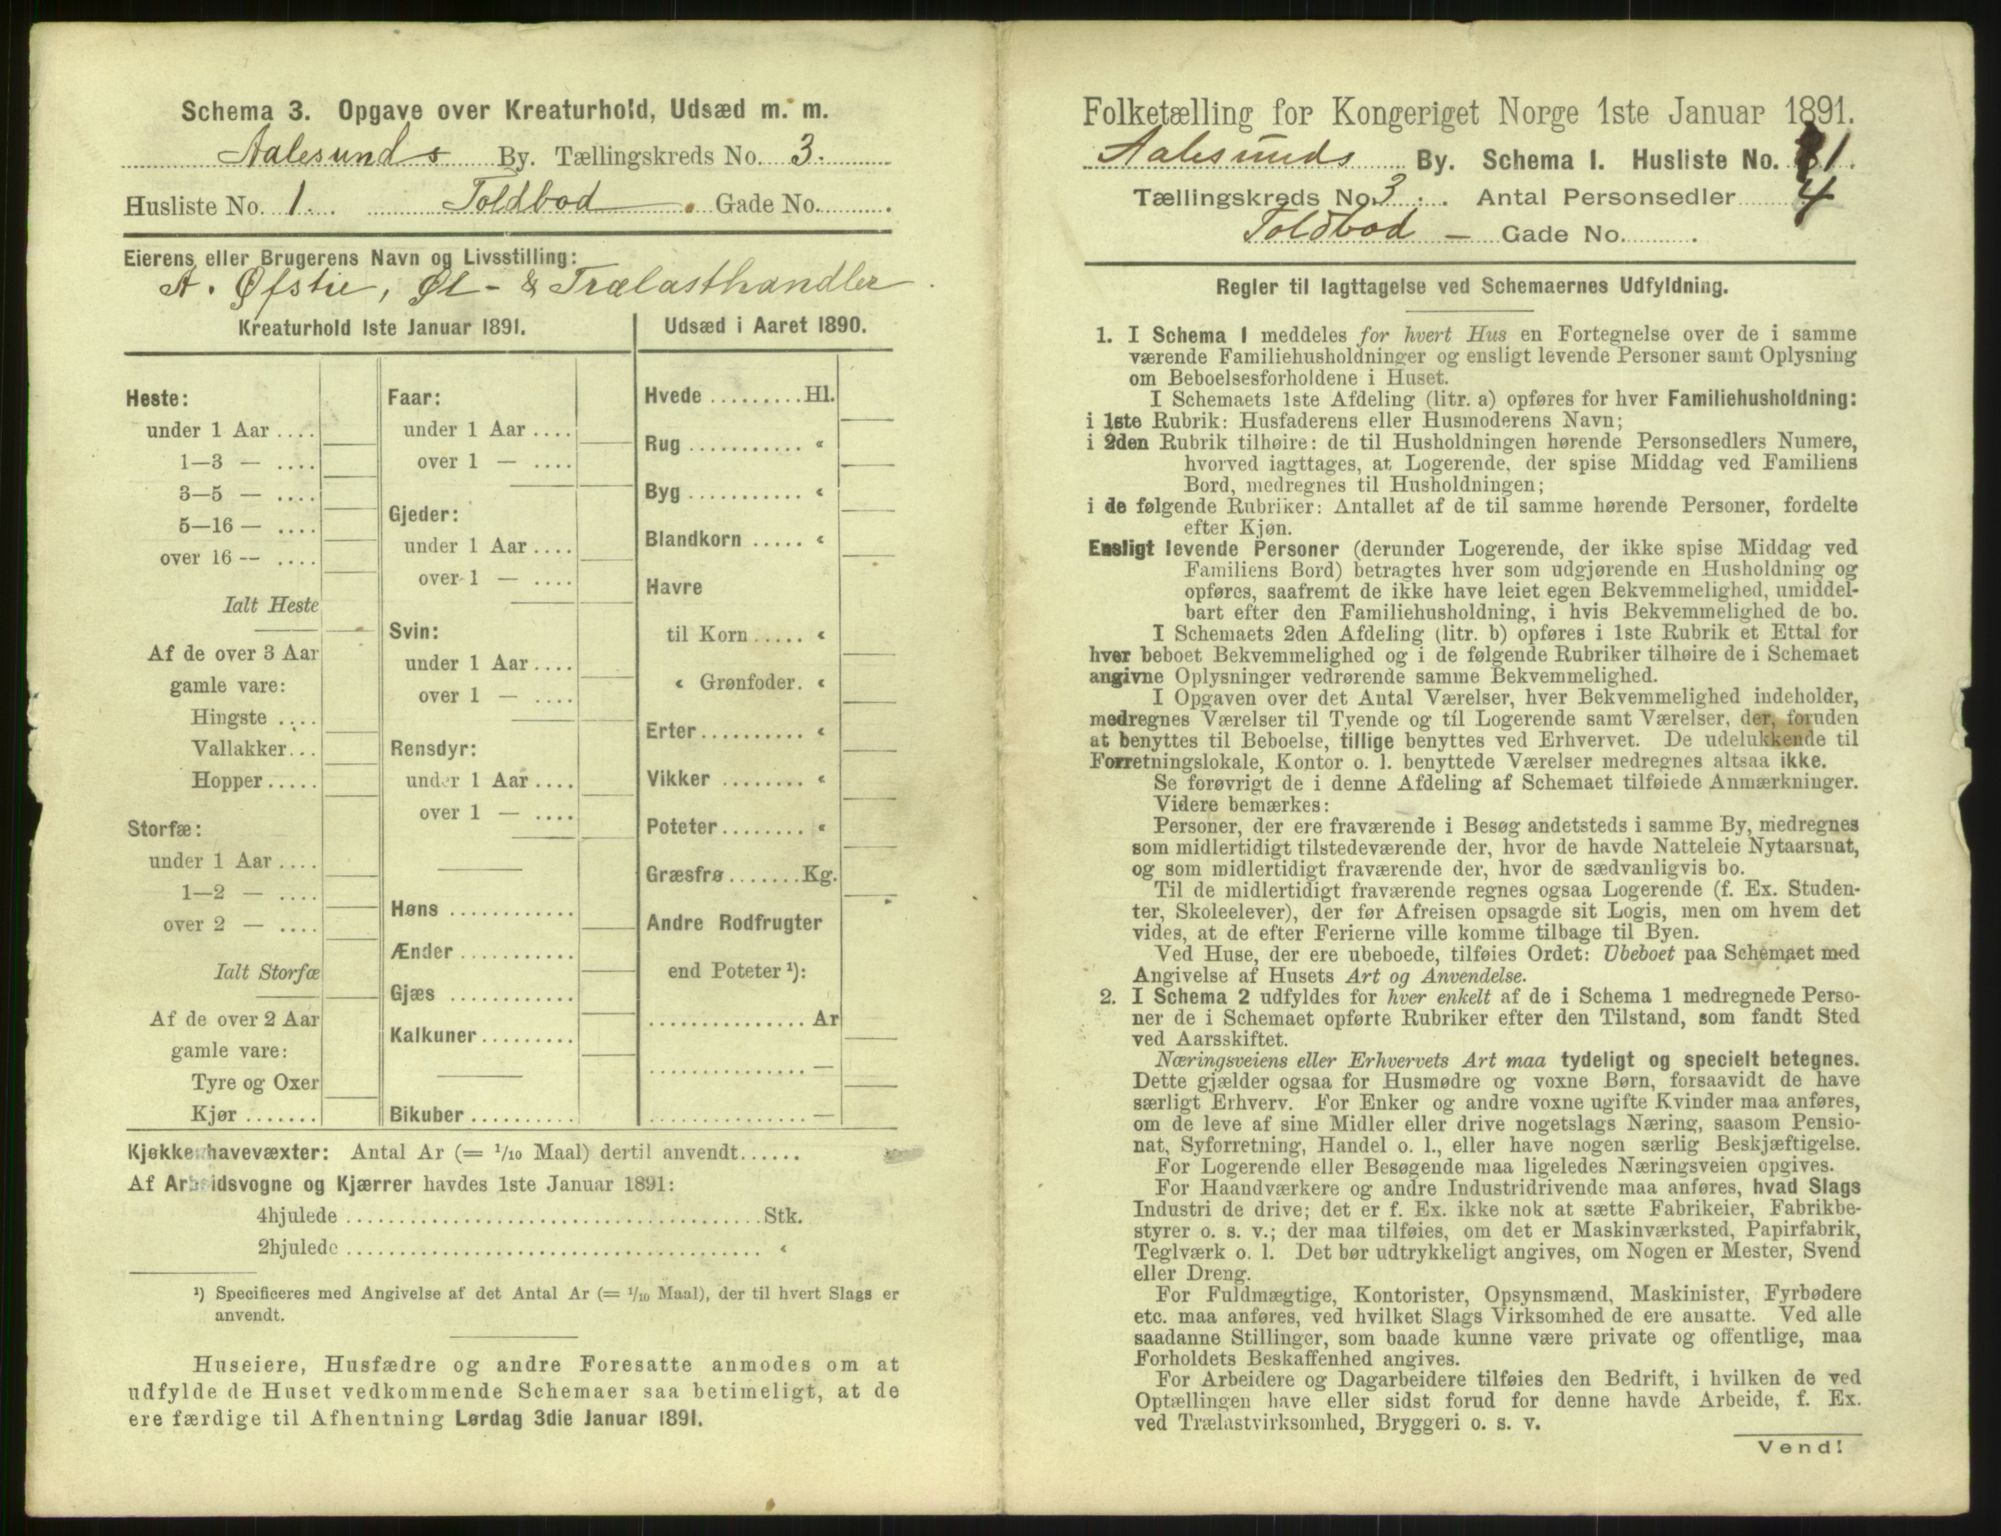 Schema 3. Opgave over Kreaturhold, Udsæd m. m.
Aalesunds By. Tællingskreds No. 3.
Husliste No. 1. Toldbod Gade No.
Eierens eller Brugerens Navn og Livsstilling:
A. Øfstie, Øl- & Trælasthandler.
Kreaturhold 1ste Januar 1891.
Heste:
under 1 Aar ....
1—3 — ....
3—5 — ....
5—16 — ....
over 16 — ....
Ialt Heste
Af de over 3 Aar
gamle vare:
Hingste ....
Vallakker...
Hopper.....
Storfæ:
under 1 Aar ....
1—2 — ....
over 2 — ....
Ialt Storfæ
Af de over 2 Aar
gamle vare:
Tyre og Oxer
Kjør .......
Faar:
under 1 Aar ....
over 1 — ....
Gjeder:
under 1 Aar ....
over 1 — ....
Svin:
under 1 Aar ....
over 1 — ....
Rensdyr:
under 1 Aar ....
over 1 — ....
Høns ............
Ænder ...........
Gjæs ............
Kalkuner.........
Bikuber ..........
Udsæd i Aaret 1890.
Hvede .........Hl.
Rug ........... «
Byg ........... «
Blandkorn ..... «
Havre
til Korn ..... «
« Grønfoder. «
Erter.......... «
Vikker ........ «
Poteter........ «
Græsfrø.......Kg.
Andre Rodfrugter
end Poteter ¹):
............... Ar
............... —
............... —
Kjøkkenhavevæxter: Antal Ar (= 1/10 Maal) dertil anvendt......
Af Arbeidsvogne og Kjærrer havdes 1ste Januar 1891:
4hjulede ........................................Stk.
2hjulede ........................................ «
¹) Specificeres med Angivelse af det Antal Ar (= 1/10 Maal), der til hvert Slags er
anvendt.
Huseiere, Husfædre og andre Foresatte anmodes om at
udfylde de Huset vedkommende Schemaer saa betimeligt, at de
ere færdige til Afhentning Lørdag 3die Januar 1891.
Folketælling for Kongeriget Norge 1ste Januar 1891.
Aalesunds By. Schema 1. Husliste No. 1.
Tællingskreds No. 3. Antal Personsedler 4
Toldbod — Gade No.
Regler til Iagttagelse ved Schemaernes Udfyldning.
1. I Schema 1 meddeles for hvert Hus en Fortegnelse over de i samme
værende Familiehusholdninger og ensligt levende Personer samt Oplysning
om Beboelsesforholdene i Huset.
I Schemaets 1ste Afdeling (litr. a) opføres for hver Familiehusholdning:
i 1ste Rubrik: Husfaderens eller Husmoderens Navn;
i 2den Rubrik tilhøire: de til Husholdningen hørende Personsedlers Numere,
hvorved iagttages, at Logerende, der spise Middag ved Familiens
Bord, medregnes til Husholdningen;
i de følgende Rubriker: Antallet af de til samme hørende Personer, fordelte
efter Kjøn.
Ensligt levende Personer (derunder Logerende, der ikke spise Middag ved
Familiens Bord) betragtes hver som udgjørende en Husholdning og
opføres, saafremt de ikke have leiet egen Bekvemmelighed, umiddel-
bart efter den Familiehusholdning, i hvis Bekvemmelighed de bo.
I Schemaets 2den Afdeling (litr. b) opføres i 1ste Rubrik et Ettal for
hver beboet Bekvemmelighed og i de følgende Rubriker tilhøire de i Schemaet
angivne Oplysninger vedrørende samme Bekvemmelighed.
I Opgaven over det Antal Værelser, hver Bekvemmelighed indeholder,
medregnes Værelser til Tyende og til Logerende samt Værelser, der, foruden
at benyttes til Beboelse, tillige benyttes ved Erhvervet. De udelukkende til
Forretningslokale, Kontor o. l. benyttede Værelser medregnes altsaa ikke.
Se forøvrigt de i denne Afdeling af Schemaet tilføiede Anmærkninger.
Videre bemærkes:
Personer, der ere fraværende i Besøg andetsteds i samme By, medregnes
som midlertidigt tilstedeværende der, hvor de havde Natteleie Nytaarsnat,
og som midlertidigt fraværende der, hvor de sædvanligvis bo.
Til de midlertidigt fraværende regnes ogsaa Logerende (f. Ex. Studen-
ter, Skoleelever), der før Afreisen opsagde sit Logis, men om hvem det
vides, at de efter Ferierne ville komme tilbage til Byen.
Ved Huse, der ere ubeboede, tilføies Ordet: Ubeboet paa Schemaet med
Angivelse af Husets Art og Anvendelse.
2. I Schema 2 udfyldes for hver enkelt af de i Schema 1 medregnede Perso-
ner de i Schemaet opførte Rubriker efter den Tilstand, som fandt Sted
ved Aarsskiftet.
Næringsveiens eller Erhvervets Art maa tydeligt og specielt betegnes.
Dette gjælder ogsaa for Husmødre og voxne Børn, forsaavidt de have
særligt Erhverv. For Enker og andre voxne ugifte Kvinder maa anføres,
om de leve af sine Midler eller drive nogetslags Næring, saasom Pensio-
nat, Syforretning, Handel o. l., eller have nogen særlig Beskjæftigelse.
For Logerende eller Besøgende maa ligeledes Næringsveien opgives.
For Haandværkere og andre Industridrivende maa anføres, hvad Slags
Industri de drive; det er f. Ex. ikke nok at sætte Fabrikeier, Fabrikbe-
styrer o. s. v.; der maa tilføies, om det er Maskinværksted, Papirfabrik,
Teglværk o. l. Det bør udtrykkeligt angives, om Nogen er Mester, Svend
eller Dreng.
For Fuldmægtige, Kontorister, Opsynsmænd, Maskinister, Fyrbødere
etc. maa anføres, ved hvilket Slags Virksomhed de ere ansatte. Ved alle
saadanne Stillinger, som baade kunne være private og offentlige, maa
Forholdets Beskaffenhed angives.
For Arbeidere og Dagarbeidere tilføies den Bedrift, i hvilken de ved
Optællingen have eller sidst forud for denne havde Arbeide, f. Ex.
ved Trælastvirksomhed, Bryggeri o. s. v.
Vend!